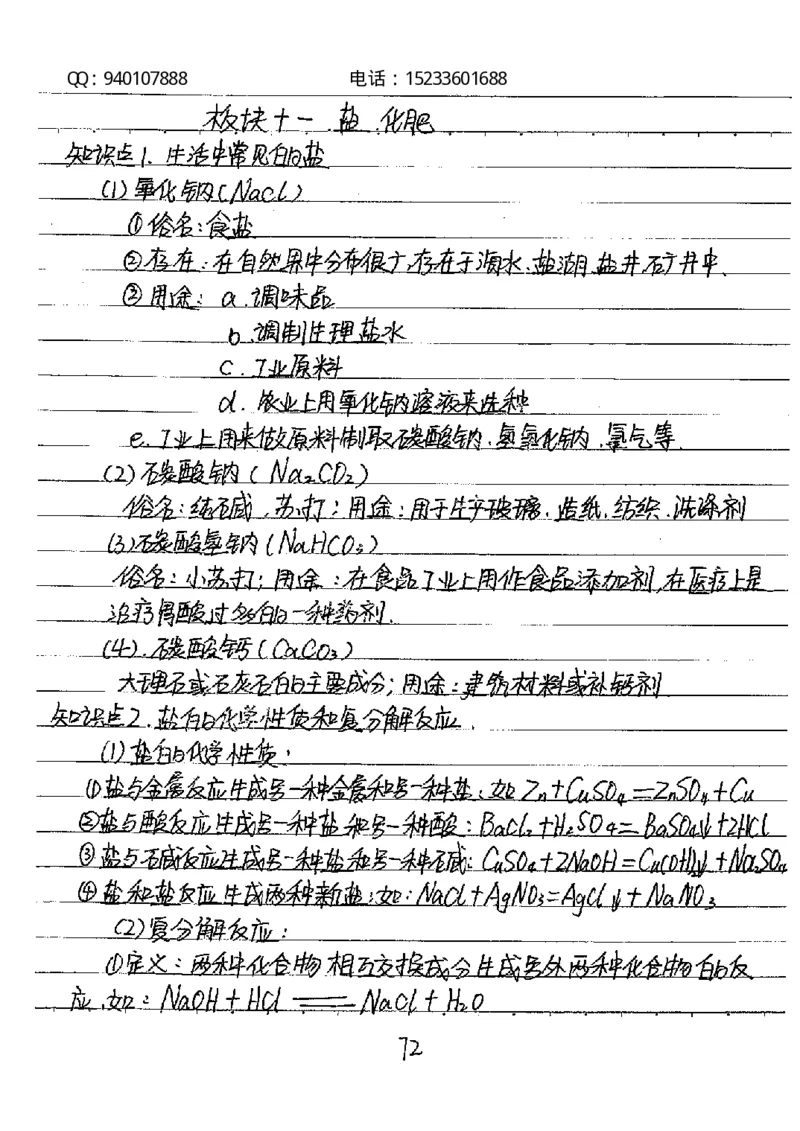 QQ：940107888 电话：15233601688
板块十一 盐 化肥
知识点1. 生活中常见的盐
(1) 氯化钠(NaCl)
①俗名:食盐
②存在:在自然界中分布很广,存在于海水、盐湖、盐井、矿井中.
③用途: a.调味品
b.调制生理盐水
c.工业原料
d. 农业上用氯化钠溶液来选种
e.工业上用来做原料制取碳酸钠、氢氧化钠、氯气等.
(2) 碳酸钠(Na₂CO₂)
俗名:纯碱,苏打;用途:用于生产玻璃、造纸、纺织、洗涤剂
(3)碳酸氢钠(NaHCO₃)
俗名:小苏打;用途:在食品工业上用作食品添加剂,在医疗上是
治疗胃酸过多的一种药剂.
(4).碳酸钙(CaCO₃)
大理石或石灰石的主要成分;用途:建筑材料或补钙剂
知识点2.盐的化学性质和复分解反应.
(1)盐的化学性质:
①盐与金属反应生成另一种金属和另一种盐:如Zn+CuSO₄=ZnSO₄+Cu
②盐与酸反应生成另一种盐和另一种酸:BaCl₂+H₂SO₄=BaSO₄↓+2HCl
③盐与碱反应生成另一种盐和另一种碱:CuSO₄+2NaOH=Cu(OH)₂↓+Na₂SO₄
④盐和盐反应生成两种新盐:如:NaCl+AgNO₃=AgCl↓+NaNO₃
(2)复分解反应:
①定义:两种化合物相互交换成分生成另外两种化合物的反
应,如:NaOH+HCl=NaCl+H₂O
72